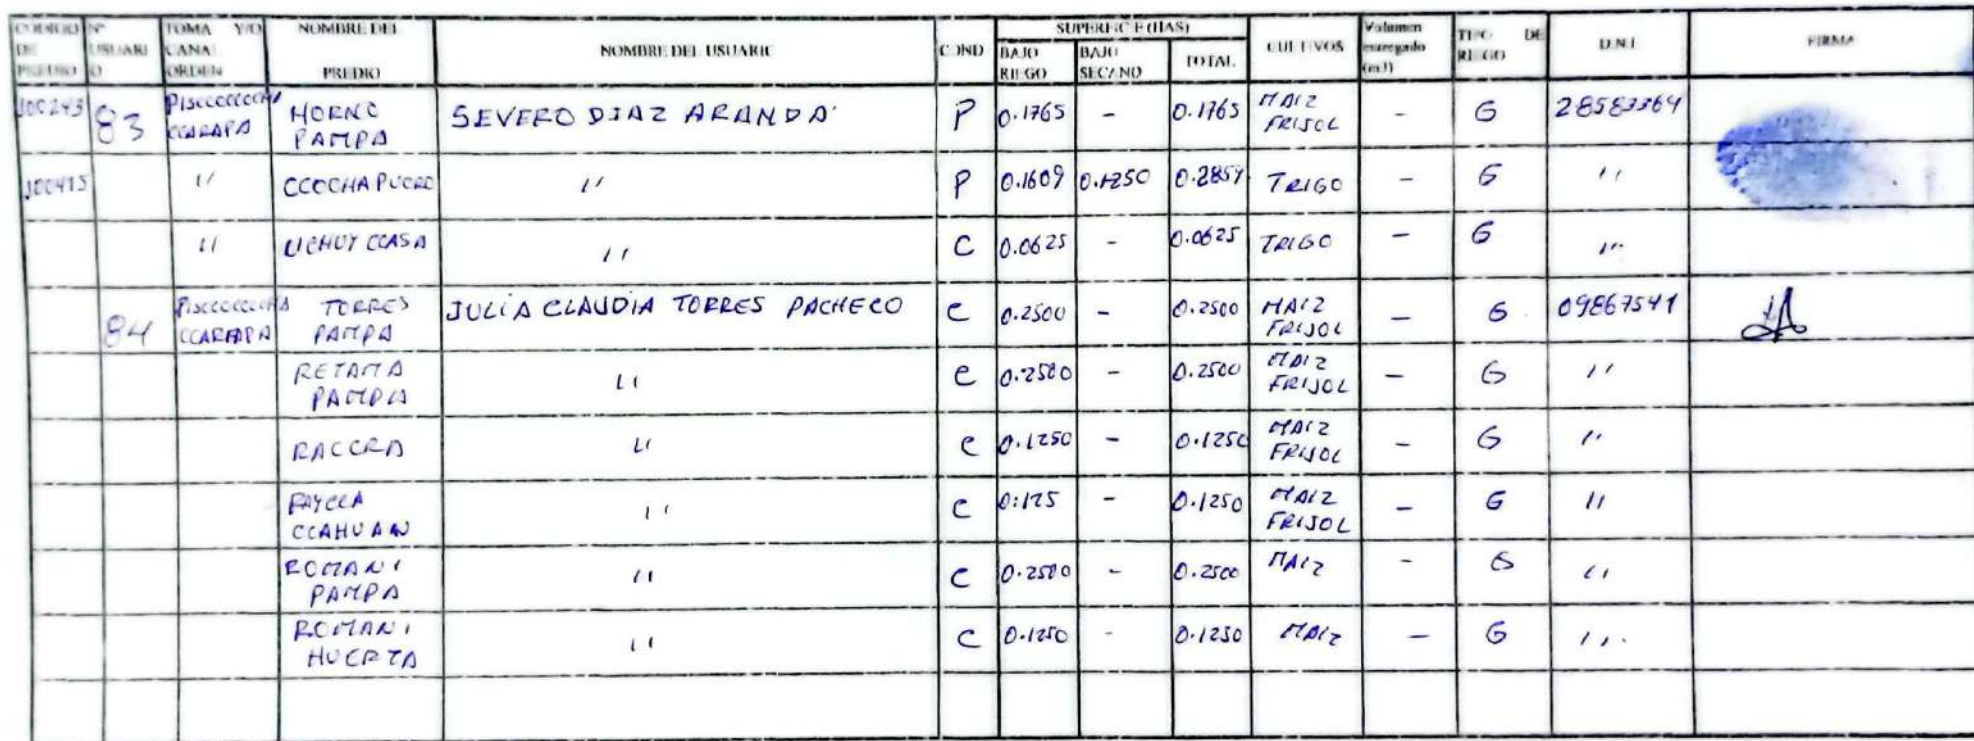 CODIGO DE PREDIO | Nº USUARIO | TOMA Y/O CANAL ORDEN | NOMBRE DEL PREDIO | NOMBRE DEL USUARIO | COND | SUPERFICE (HAS) | CULTIVOS | Volumen entregado (m3) | TIPO DE RIEGO | D.N.I | FIRMA
BAJO RIEGO | BAJO SECANO | TOTAL
J00243 | 83 | Pisccccocha CCARAPA | HORNO PAMPA | SEVERO DIAZ ARANDA | P | 0.1765 | - | 0.1765 | MAIZ FRIJOL | - | G | 28583364
J00415 | '' | CCOCHAPUCRO | '' | P | 0.1609 | 0.1250 | 0.2859 | TRIGO | - | G | ''
'' | UCHUY CCASA | '' | C | 0.0625 | - | 0.0625 | TRIGO | - | G | ''
84 | CCARAPA | TORRES PAMPA | JULIA CLAUDIA TORRES PACHECO | C | 0.2500 | - | 0.2500 | MAIZ FRIJOL | - | G | 09867541
RETAMA PAMPA | '' | C | 0.2500 | - | 0.2500 | MAIZ FRIJOL | - | G | ''
RACCRA | '' | C | 0.1250 | - | 0.1250 | MAIZ FRIJOL | - | G | ''
PAYCCA CCAHUAN | '' | C | 0.125 | - | 0.1250 | MAIZ FRIJOL | - | G | ''
ROMANI PAMPA | '' | C | 0.2500 | - | 0.2500 | MAIZ | - | G | ''
ROMANI HUERTA | '' | C | 0.1250 | - | 0.1250 | MAIZ | - | G | ''